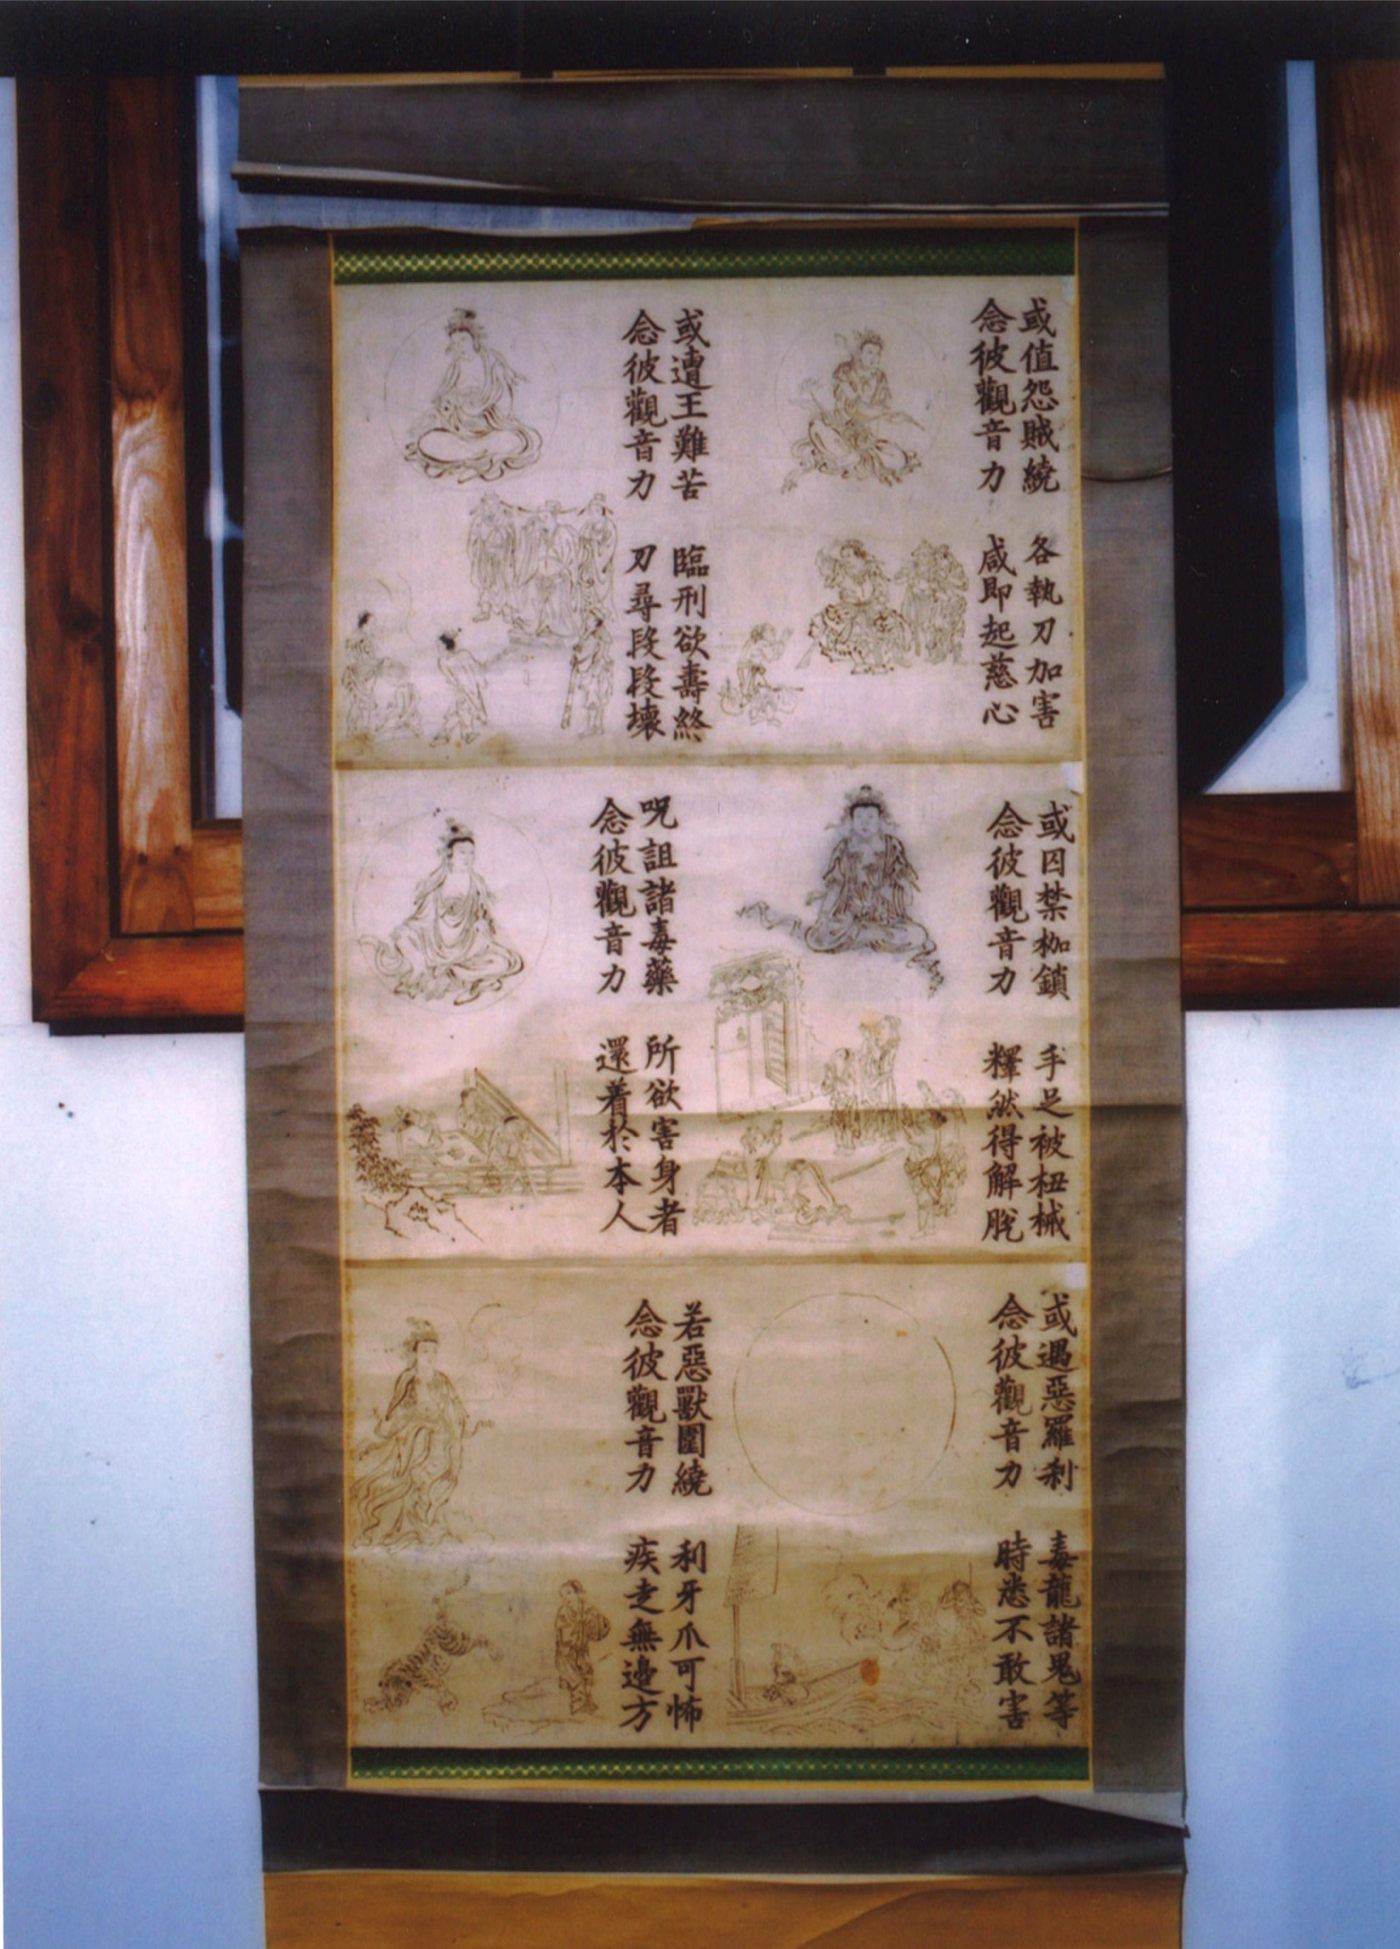 或值怨賊繞 各執刀加害
念彼觀音力 咸即起慈心
或遭王難苦 臨刑欲壽終
念彼觀音力 刀尋段段壞
或囚禁枷鎖 手足被杻械
念彼觀音力 釋然得解脫
呪詛諸毒藥 所欲害身者
念彼觀音力 還着於本人
或遇惡羅刹 毒龍諸鬼等
念彼觀音力 時悉不敢害
若惡獸圍繞 利牙爪可怖
念彼觀音力 疾走無邊方